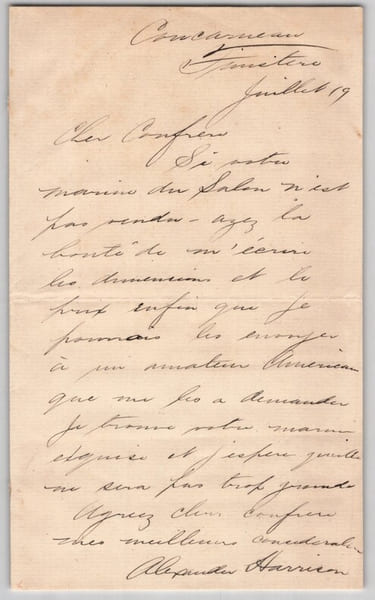 Concarneau
Finistere
Juillet 19
Cher Confrere
Si votre
marine du Salon n'est
pas vendu - ayez la
bonté de m'écrire
les dimensions et le
prix enfin que je
pourrais les envoyer
à un amateur American
que me les a demander
Je trouve votre marine
exquise et j'espere qu'elle
ne sera pas trop grande
Agreez cher confrere
mes meilleurs considerations
Alexander Harrison